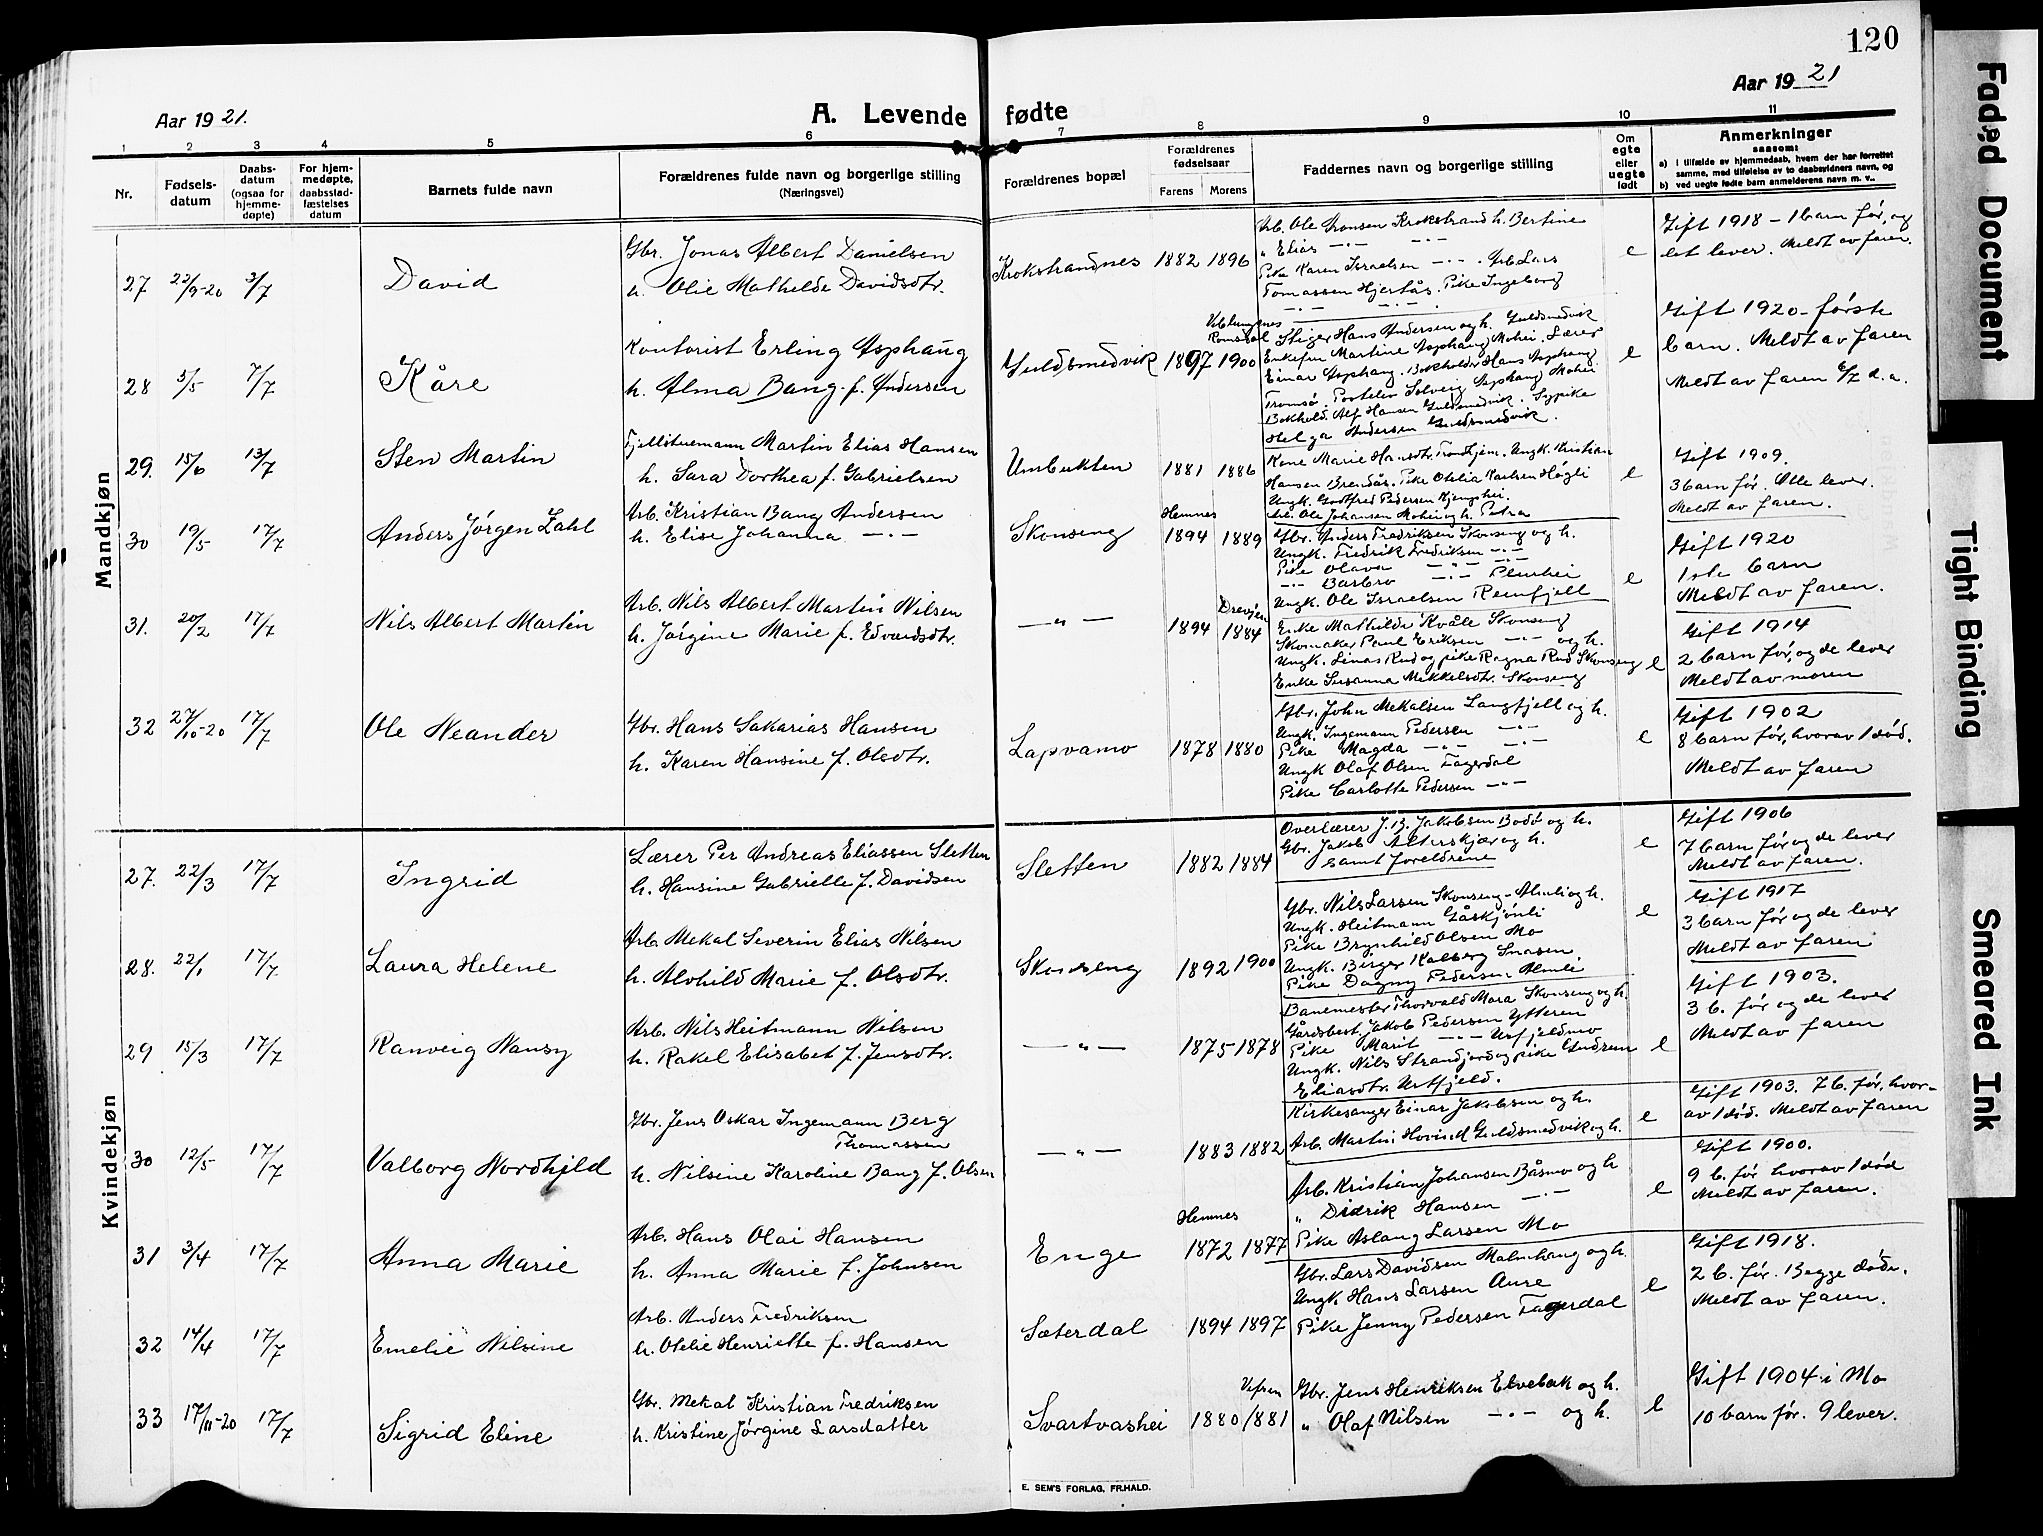 120
Aar 1921.
A. Levende fødte
Aar 1921
1 2 3 4 5 6 7 8 9 10 11
Nr.
Fødsels-
datum
Daabs-
datum
(ogsaa for
hjemme-
døpte)
For hjem-
medøpte,
daabsstad-
fæstelses
datum
Barnets fulde navn
Forældrenes fulde navn og borgerlige stilling
(Næringsvei)
Forældrenes bopæl
Forældrenes
fødselsaar
Farens Morens
Faddernes navn og borgerlige stilling
Om
egte
eller
uegte
født
Anmerkninger
saasom:
a) i tilfælde av hjemmedaab, hvem der har forrettet
samme, med tilføielse av to daabsvidners navn, og
b) ved uegte fødte barn anmelderens navn m. v..
Mandkjøn
27 22/9-20 3/7 David
Gbr. Jonas Albert Danielsen
h. Olie Mathilde Davidsdtr.
Krokstrandnes 1882 1896
Arb. Ole Aronsen Krokstrand h. Bertine
" Elias -"- -"-
Pike Karen Israelsen -"- . Arb Lars
Tomassen Hjertås. Pike Ingeborg
-"- -"-
e
Gift 1918 - 1 barn før, og
det lever. Meldt av faren.
28 5/5 7/7 Kåre
Kontorist Erling Asphaug
h. Alma Bang f. Andersen
Guldsmedvik 1897 1900
Veblungsnes
Romsdal
Stiger Hans Andersen og h. Guldsmedvik
Enkefru Martine Asphaug Mohei. Lærer
Einar Asphaug. Bokholder Hans Asphaug
Tromsø. Postelev Solveig Asphaug Mohei
Bokhold. Alf Hansen Guldsmedvik. Sypike
Helga Andersen Guldsmedvik.
e
Gift 1920 - første
barn. Meldt av faren
Meldt av faren 6/7 d.a.
29. 15/6 13/7 Sten Martin
Fjellstuemann Martin Elias Hansen
h. Sara Dorthea f. Gabrielsen
Umbukten 1881 1886
Kone Marie Hansdtr. Trondhjem. Ungk. Kristian
Hansen Brenås. Pike Otelia Karlsen Høgli
Ungk. Godtfred Pedersen
Arb. Ole Johansen Mohei og h. Petra
e
Gift 1909.
3 barn før. Alle lever.
Meldt av faren.
30 19/5 17/7 Anders Jørgen Zahl
Arb. Kristian Bang Andersen
h. Elise Johanna -"-
Skonseng
Hemnes
1894 1889
Gbr. Anders Fredriksen Skonseng og h.
Ungk. Fredrik Fredriksen -"-
Pike Olava -"- -"-
-"- Barbro -"- Plurhei
Ungk. Ole Israelsen Reinfjell
e
Gift 1920
1ste barn
Meldt av faren.
31. 20/2 17/7 Nils Albert Martin
Arb. Nils Albert Martin Nilsen
h. Jørgine Marie f. Edvardsdtr.
-"-
Drevjen
1894 1884
Enke Mathilde Kvåle Skonseng
Skomaker Paul Eriksen -"- og h.
Ungk. Linas Rud og pike Ragna Rud Skonseng
Enke Susanna Mekkelsdtr. Skonseng
e
Gift 1914
2 barn før, og de lever
Meldt av moren
32 27/10-20 17/7 Ole Neander
Gbr. Hans Sakarias Hansen
h. Karen Hansine f. Olsdtr.
Lapvamo 1878 1880
Gbr. John Mekalsen Langfjell og h.
Ungk. Ingemann Pedersen -"-
Pike Magda -"- -"-
Ungk Olaf Olsen Fagerdal
Pike Carlotte Pedersen -"-
e
Gift 1902
8 barn før, hvorav 1 død.
Meldt av faren
Kvindekjøn
27. 22/3 17/7 Ingrid
Lærer Per Andreas Eliassen Sletten
h. Hansine Gabrielle f. Davidsen
Sletten 1882 1884
Overlærer J. B. Jakobsen Bodø og h.
Gbr. Jakob Alterskjær og h.
samt foreldrene
e
Gift 1906
7 barn før og de lever
Meldt av faren.
28. 22/1 17/7 Laura Helene
Arb. Mekal Severin Elias Nilsen
h. Alvhild Marie f. Olsdtr.
Skonseng 1892 1900
Gbr. Nils Larsen Skonseng-Almli og h.
Ungk. Heitmann Gåskjønli
Pike Brynhild Olsen Mo
Ungk. Birger Kalberg Snasen.
Pike Dagny Pedersen Almli
e
Gift 1917
3 barn før og de lever
Meldt av faren
29 15/3 17/7 Ranveig Nansy
Arb. Nils Heitmann Nilsen
h. Rakel Elisabet f. Jensdtr.
-"- 1875 1878
Banemester Thorvald Mara Skonseng og h.
Gårdsbest. Jakob Pedersen Ytteren
Pike Marit -"- Urfjeldmo
Ungk. Nils Strandjord og pike Gudrun
Eliasdtr. Urtfjeld.
e
Gift 1903.
3 b. før og de lever
Meldt av faren
30 12/5 17/7 Valborg Nordhild
Gbr. Jens Oskar Ingemann Berg
Thomassen
h. Nilsine Karoline Bang f. Olsen
-"- 1883 1882
Kirkesanger Einar Jakobsen og h.
Arb. Martin Hovind Guldsmedvik og h.
e
Gift 1903. 7 b. før, hvor-
av 1 død. Meldt av faren
31 3/4 17/7 Anna Marie
Arb. Hans Olai Hansen
h. Anna Marie f. Johnsen
Enge
Hemnes
1872 1877
Arb. Kristian Johansen Båsmo og h
" Didrik Hansen -"-
Pike Aslaug Larsen Mo
e
Gift 1900.
9 b. før hvorav 1 død
Meldt av faren.
32 14/4 17/7 Emelie Nilsine
Arb. Anders Fredriksen
h. Otelie Henriette f. Hansen
Sæterdal 1894 1897
Gbr. Lars Davidsen Malmhaug og h.
Ungk Hans Larsen Aure
Pike Jenny Pedersen Fagerdal
e
Gift 1918.
2 b. før. Begge døde.
Meldt av faren.
33 17/11-20 17/7 Sigrid Eline
Gbr. Mekal Kristian Fredriksen
h. Kristine Jørgine Larsdatter
Svartvashei
Vefsen
1880 1881
Gbr. Jens Henriksen Elvebak og h.
" Olaf Nilsen -"- og h.
e
Gift 1904 i Mo
10 barn før. 9 lever.
E. SEM'S FORLAG, FR.HALD.
Faded Document
Tight Binding
Smeared Ink